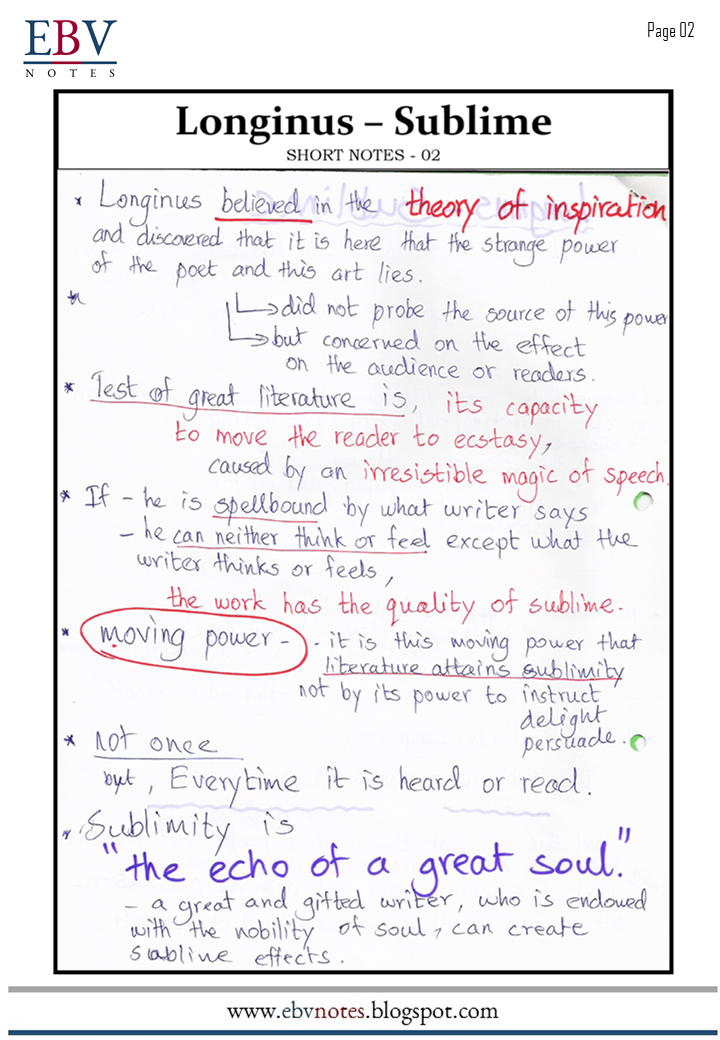 EBV
NOTES
Page 02
Longinus – Sublime
SHORT NOTES - 02
* Longinus believed in the theory of inspiration
and discovered that it is here that the strange power
of the poet and this art lies.
*
did not probe the source of this power
but concerned on the effect
on the audience or readers.
* Test of great literature is, its capacity
to move the reader to ecstasy,
caused by an irresistible magic of speech.
* If – he is spellbound by what writer says
– he can neither think or feel except what the
writer thinks or feels,
the work has the quality of sublime.
* moving power - - it is this moving power that
literature attains sublimity
not by its power to instruct
delight
persuade.
* Not once
but, Everytime it is heard or read.
* Sublimity is
"the echo of a great soul."
– a great and gifted writer, who is endowed
with the nobility of soul, can create
sabline effects.
www.ebvnotes.blogspot.com